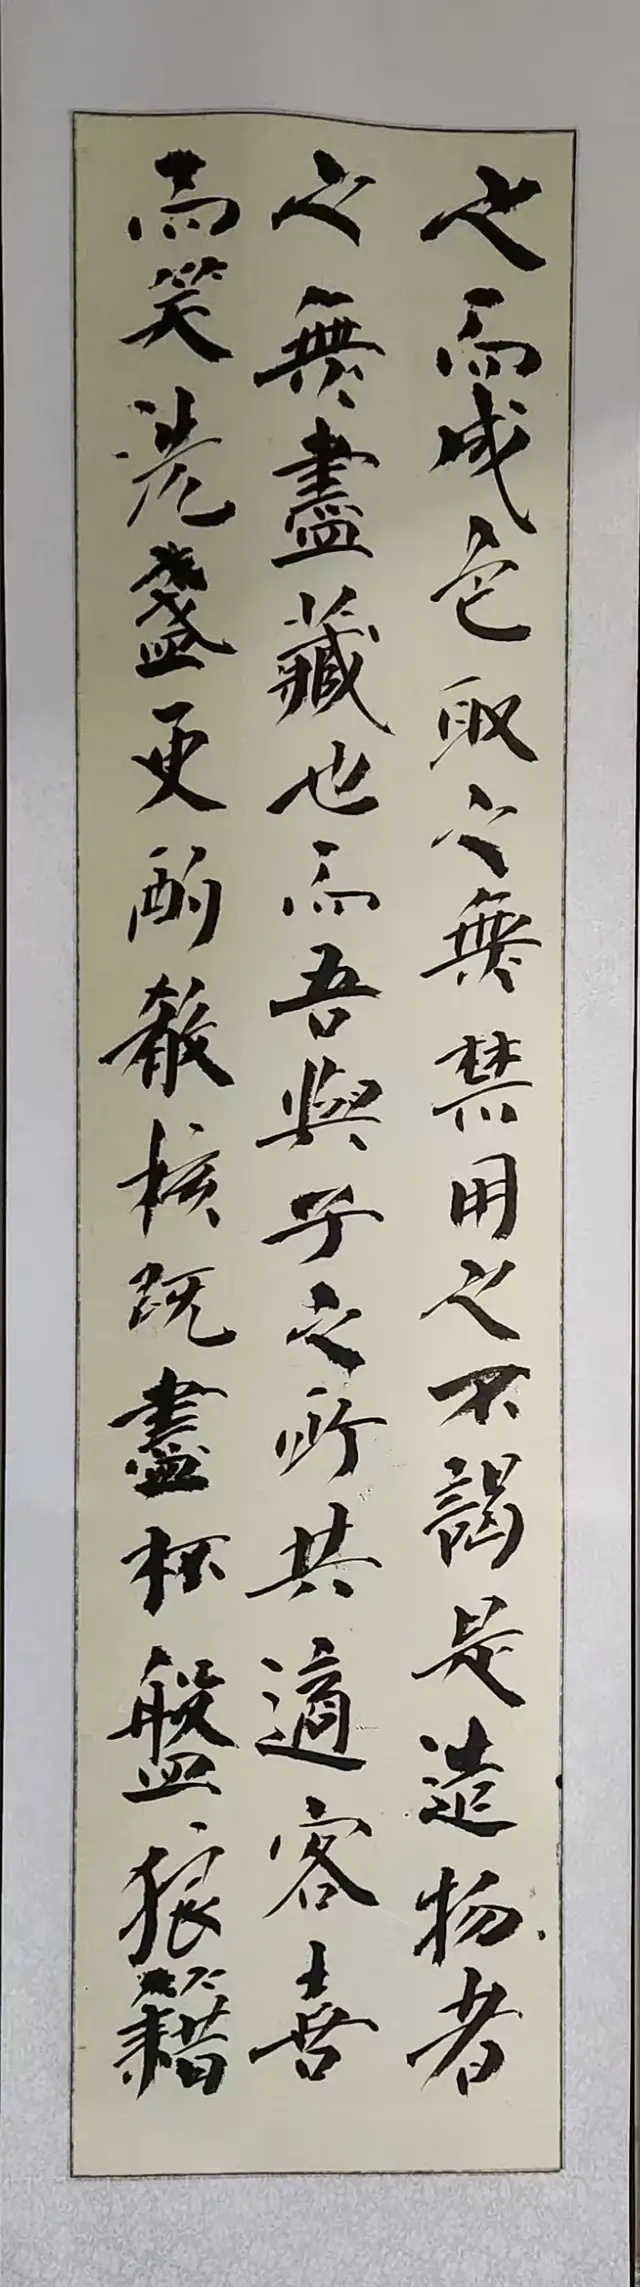 之而成色取之無禁用之不竭是造物者
之無盡藏也而吾與子之所共適客喜
而笑洗盞更酌殽核既盡杯盤狼籍